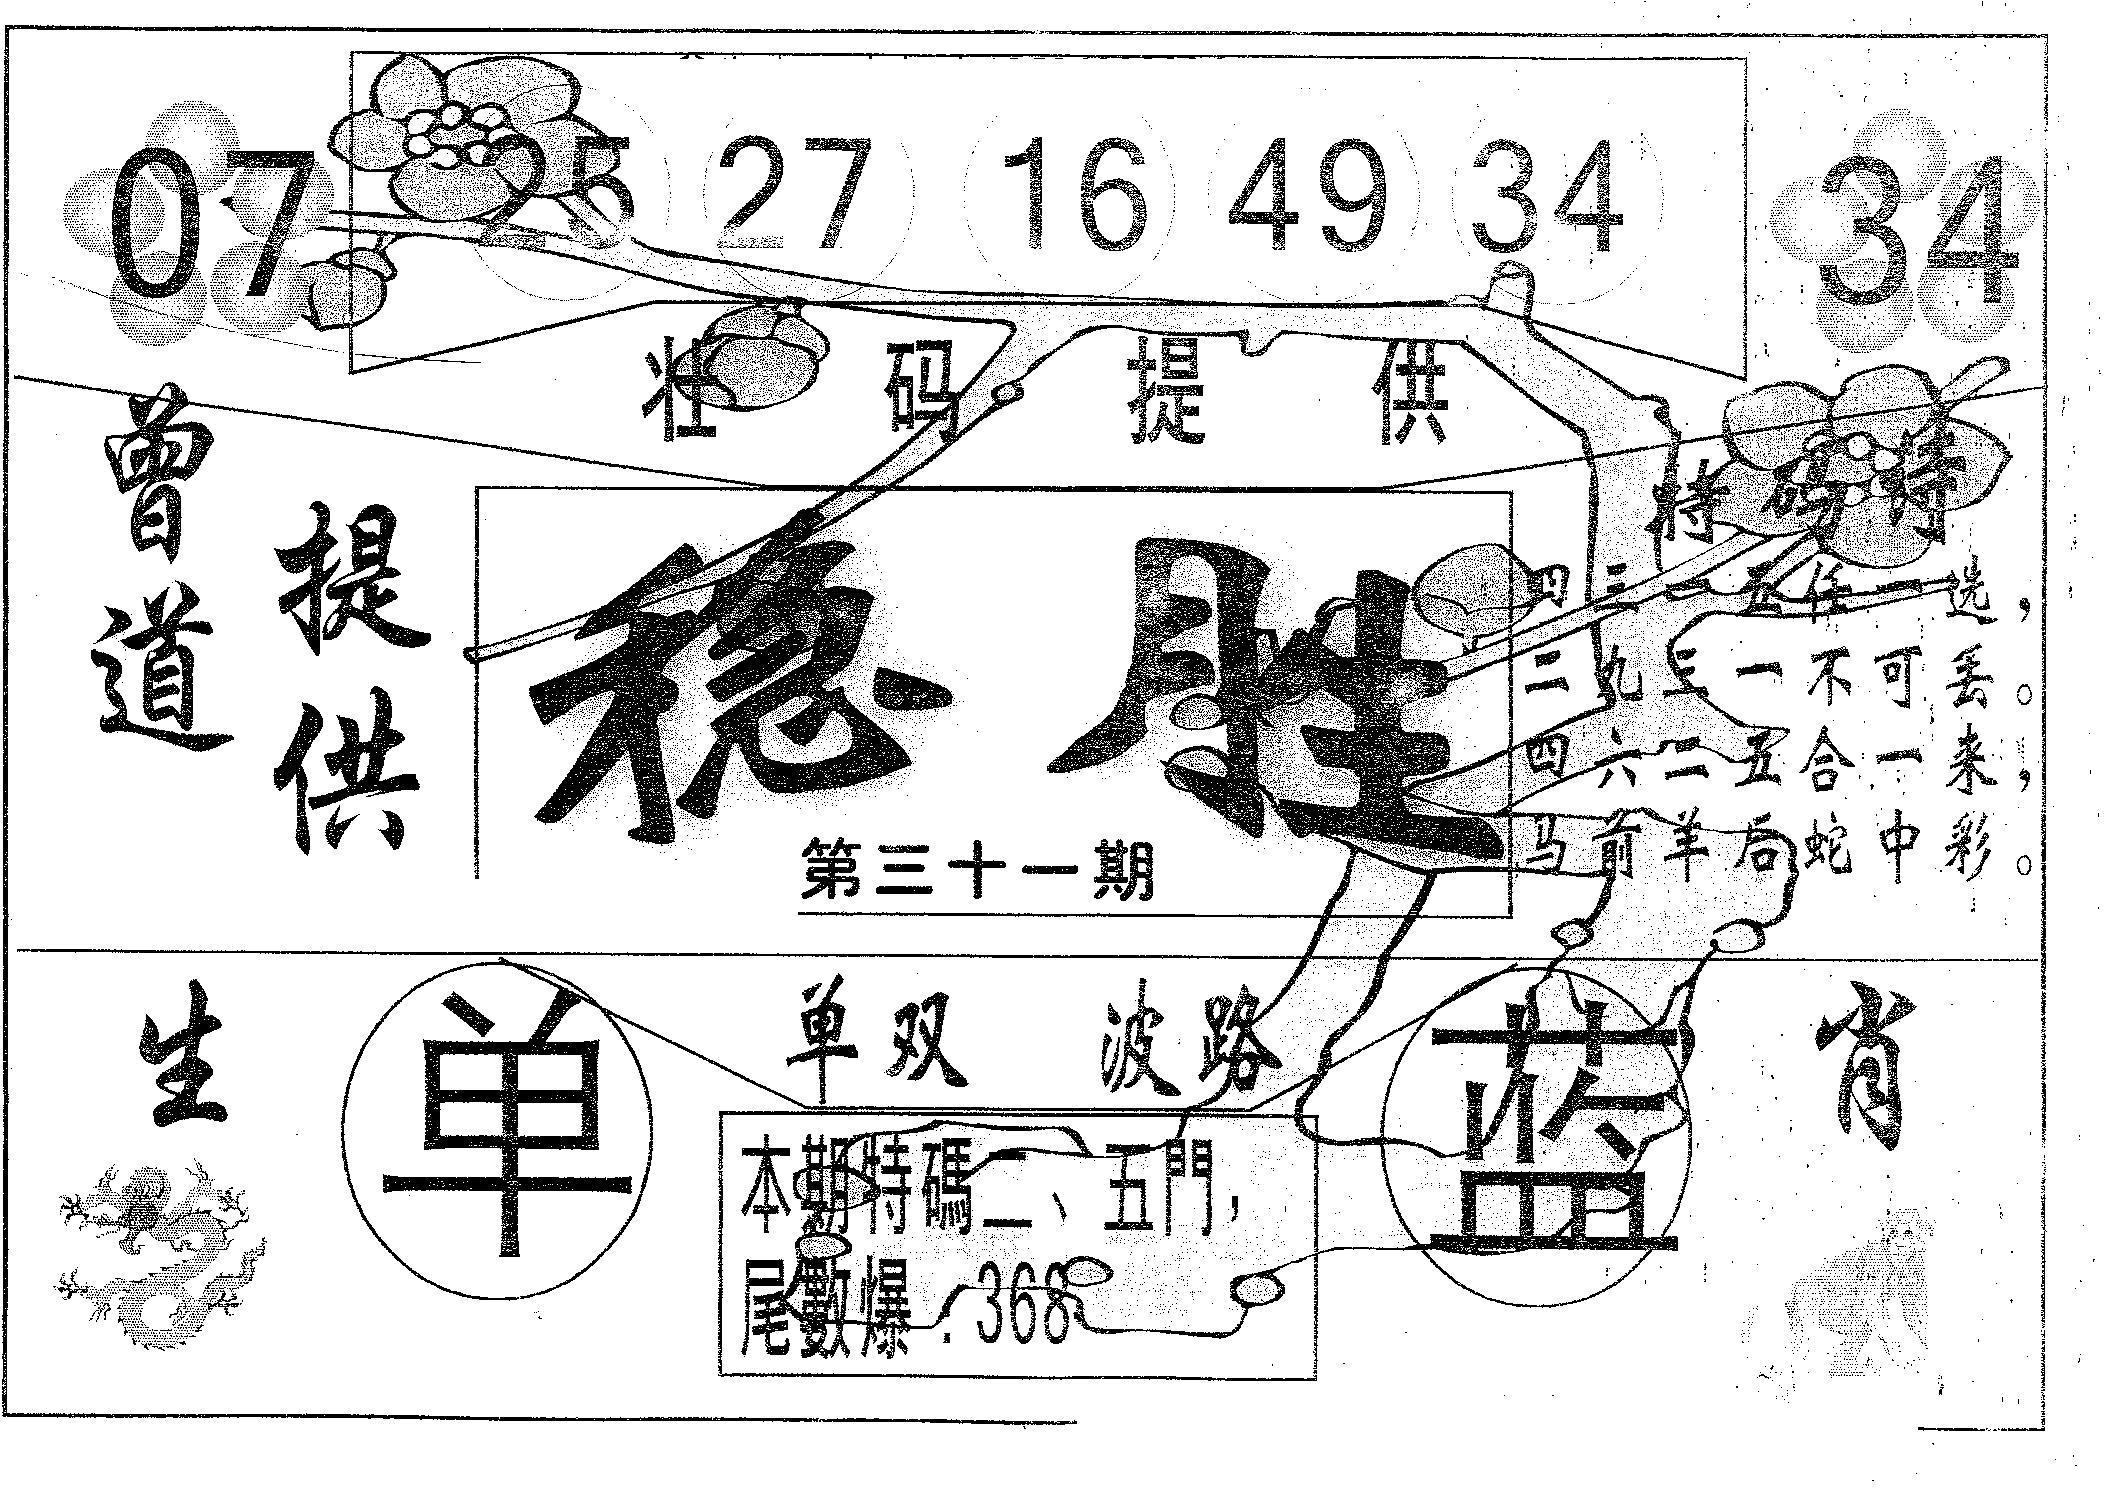 07 25 27 16 49 34 34
壮码提供
曾道
提供
稳胜
第三十一期
特码诗
四三一五任一选，
二九三一不可丢。
四六二五合一来，
马前羊后蛇中彩。
生
单
单双 波路
蓝
肖
本期特碼二、五門，
尾數爆：368